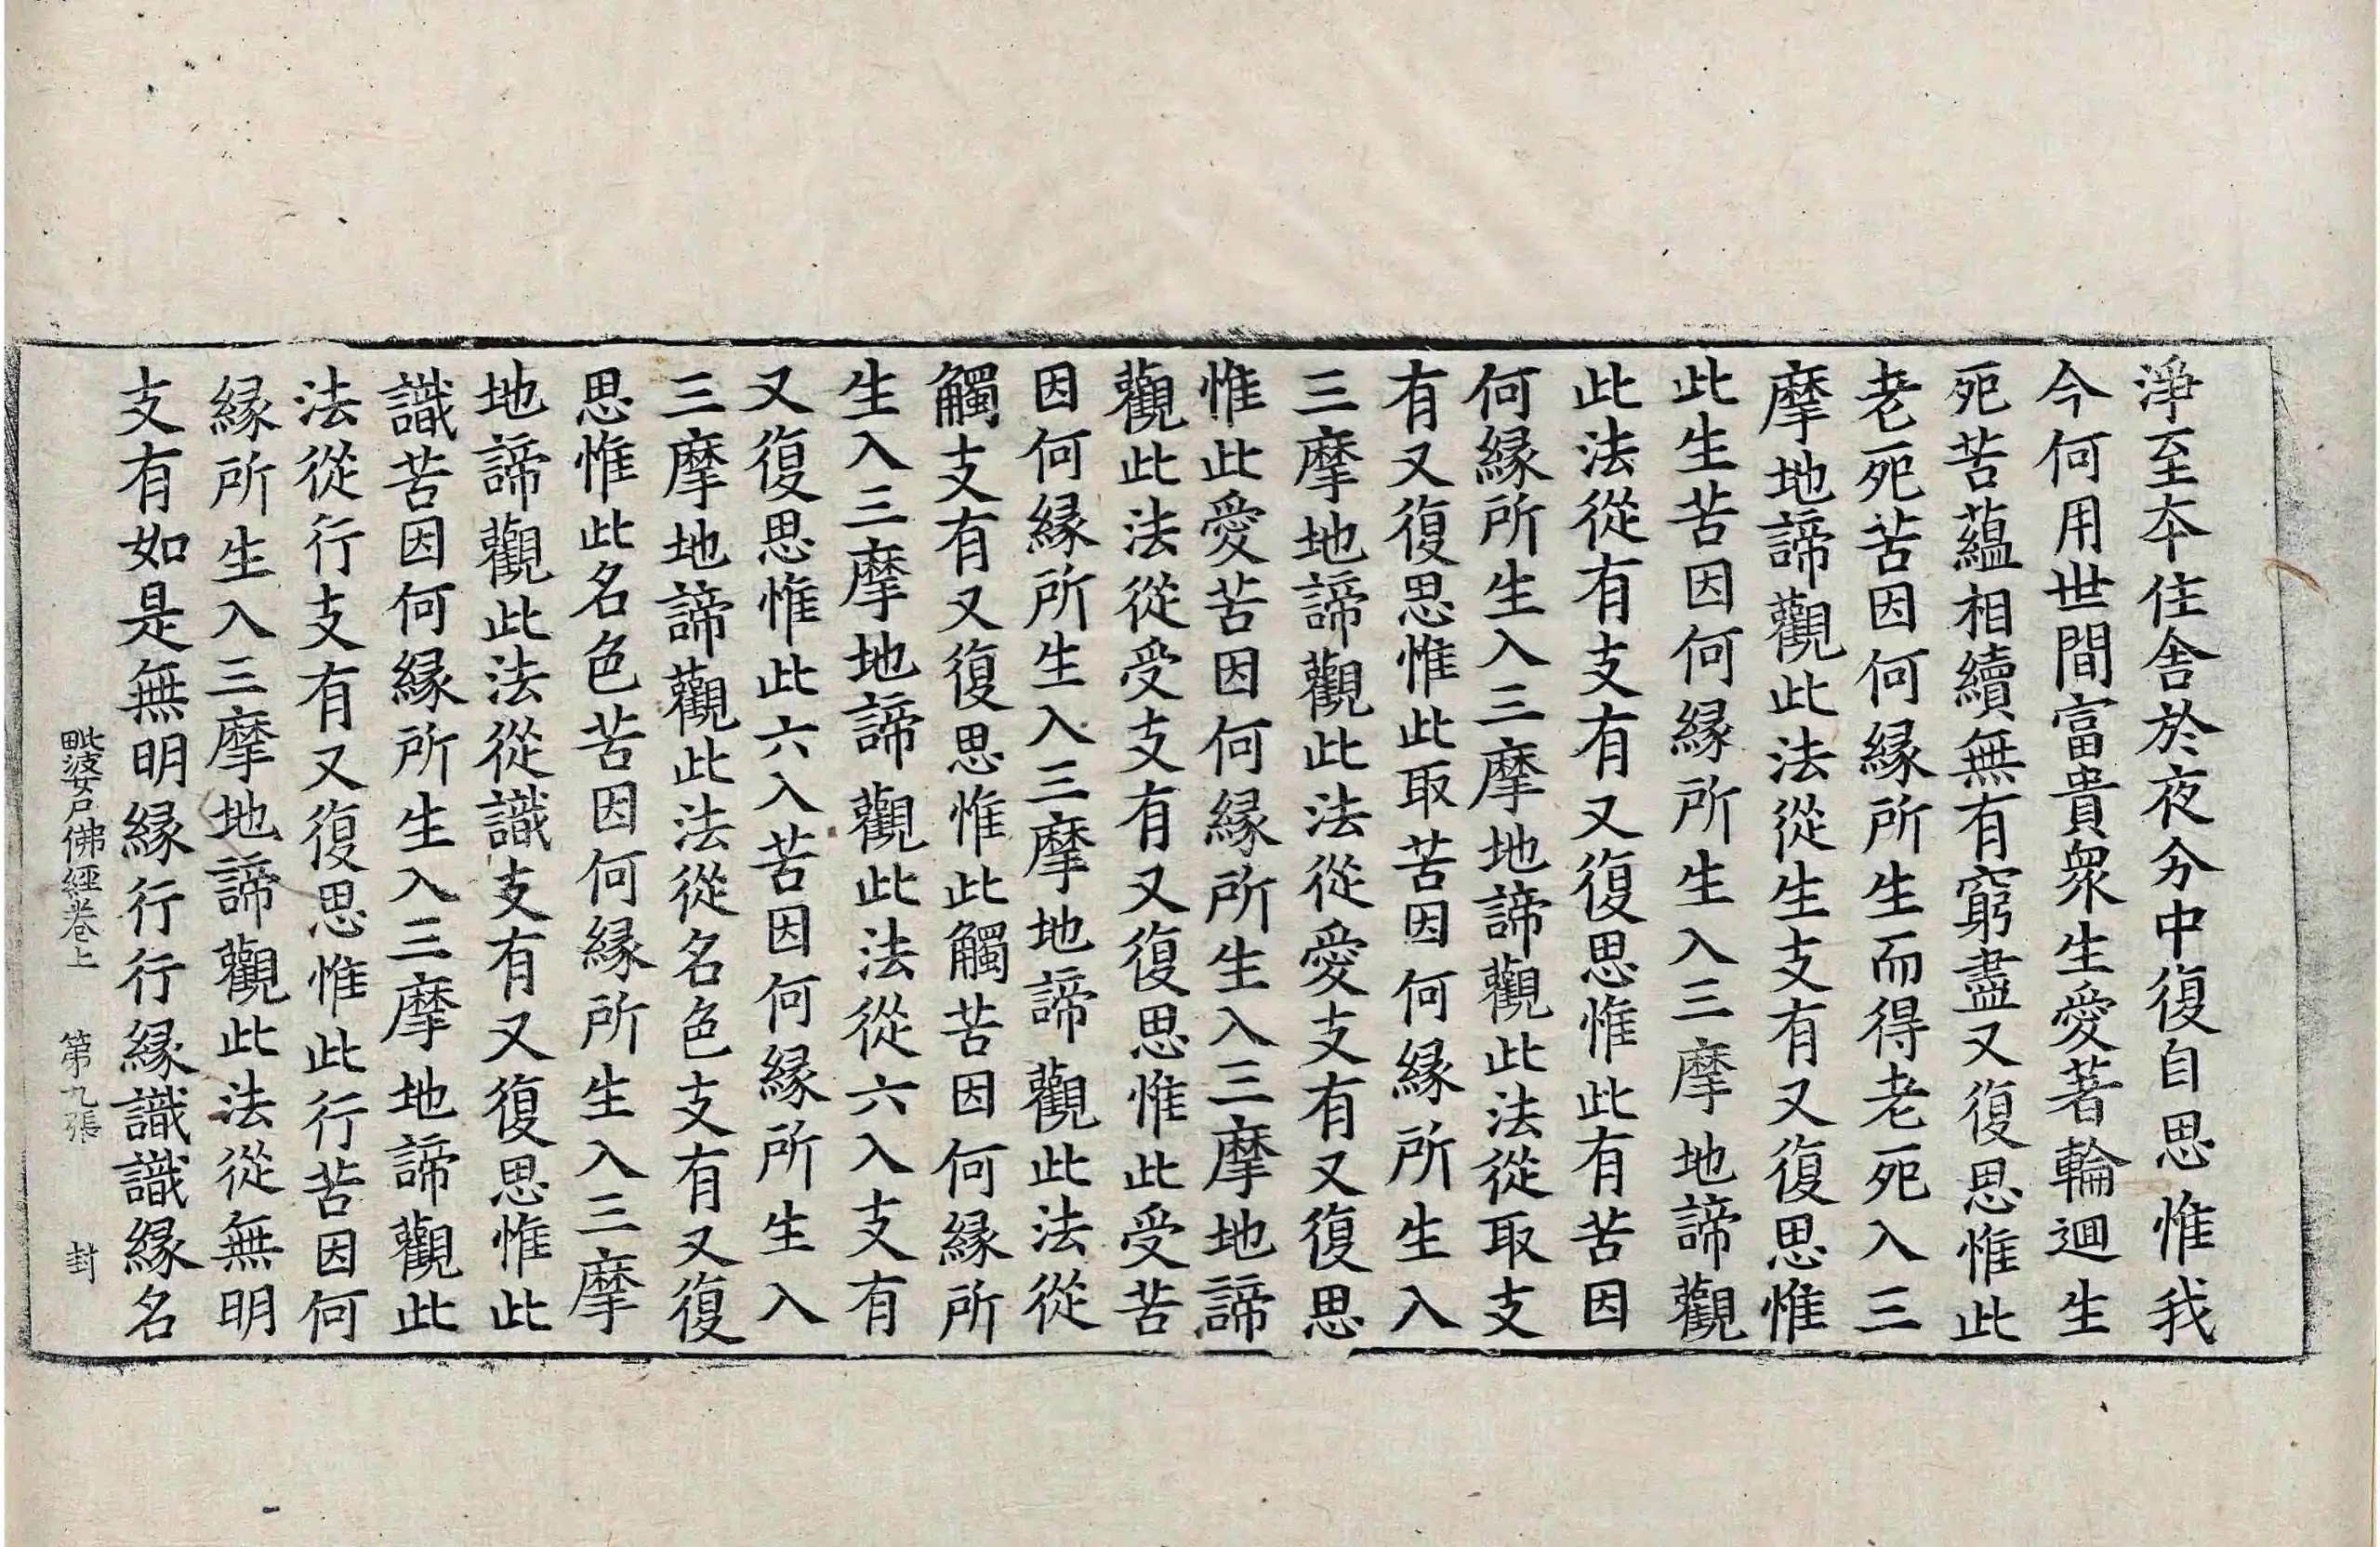 淨至夲住舍於夜分中復自思惟我
今何用世間富貴衆生愛著輪迴生
死苦蘊相續無有窮盡又復思惟此
老死苦因何縁所生而得老死入三
摩地諦觀此法從生支有又復思惟
此生苦因何縁所生入三摩地諦觀
此法從有支有又復思惟此有苦因
何縁所生入三摩地諦觀此法從取支
有又復思惟此取苦因何縁所生入
三摩地諦觀此法從愛支有又復思
惟此愛苦因何縁所生入三摩地諦
觀此法從受支有又復思惟此受苦
因何縁所生入三摩地諦觀此法從
觸支有又復思惟此觸苦因何縁所
生入三摩地諦觀此法從六入支有
又復思惟此六入苦因何縁所生入
三摩地諦觀此法從名色支有又復
思惟此名色苦因何縁所生入三摩
地諦觀此法從識支有又復思惟此
識苦因何縁所生入三摩地諦觀此
法從行支有又復思惟此行苦因何
縁所生入三摩地諦觀此法從無明
支有如是無明縁行行縁識識縁名
毗婆尸佛經卷上 第九張 封